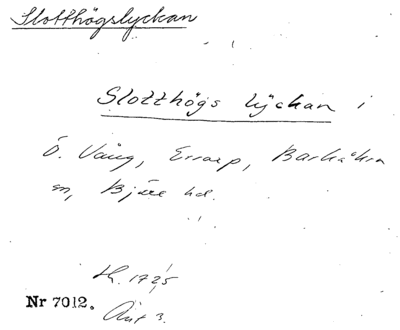 Slotthögslyckan
Slotthögs lyckan i
Ö. Vång, Errarp, Barkåkra
sn, Bjäre hd.
LH. 1725
Nr 7012. Äut 3.